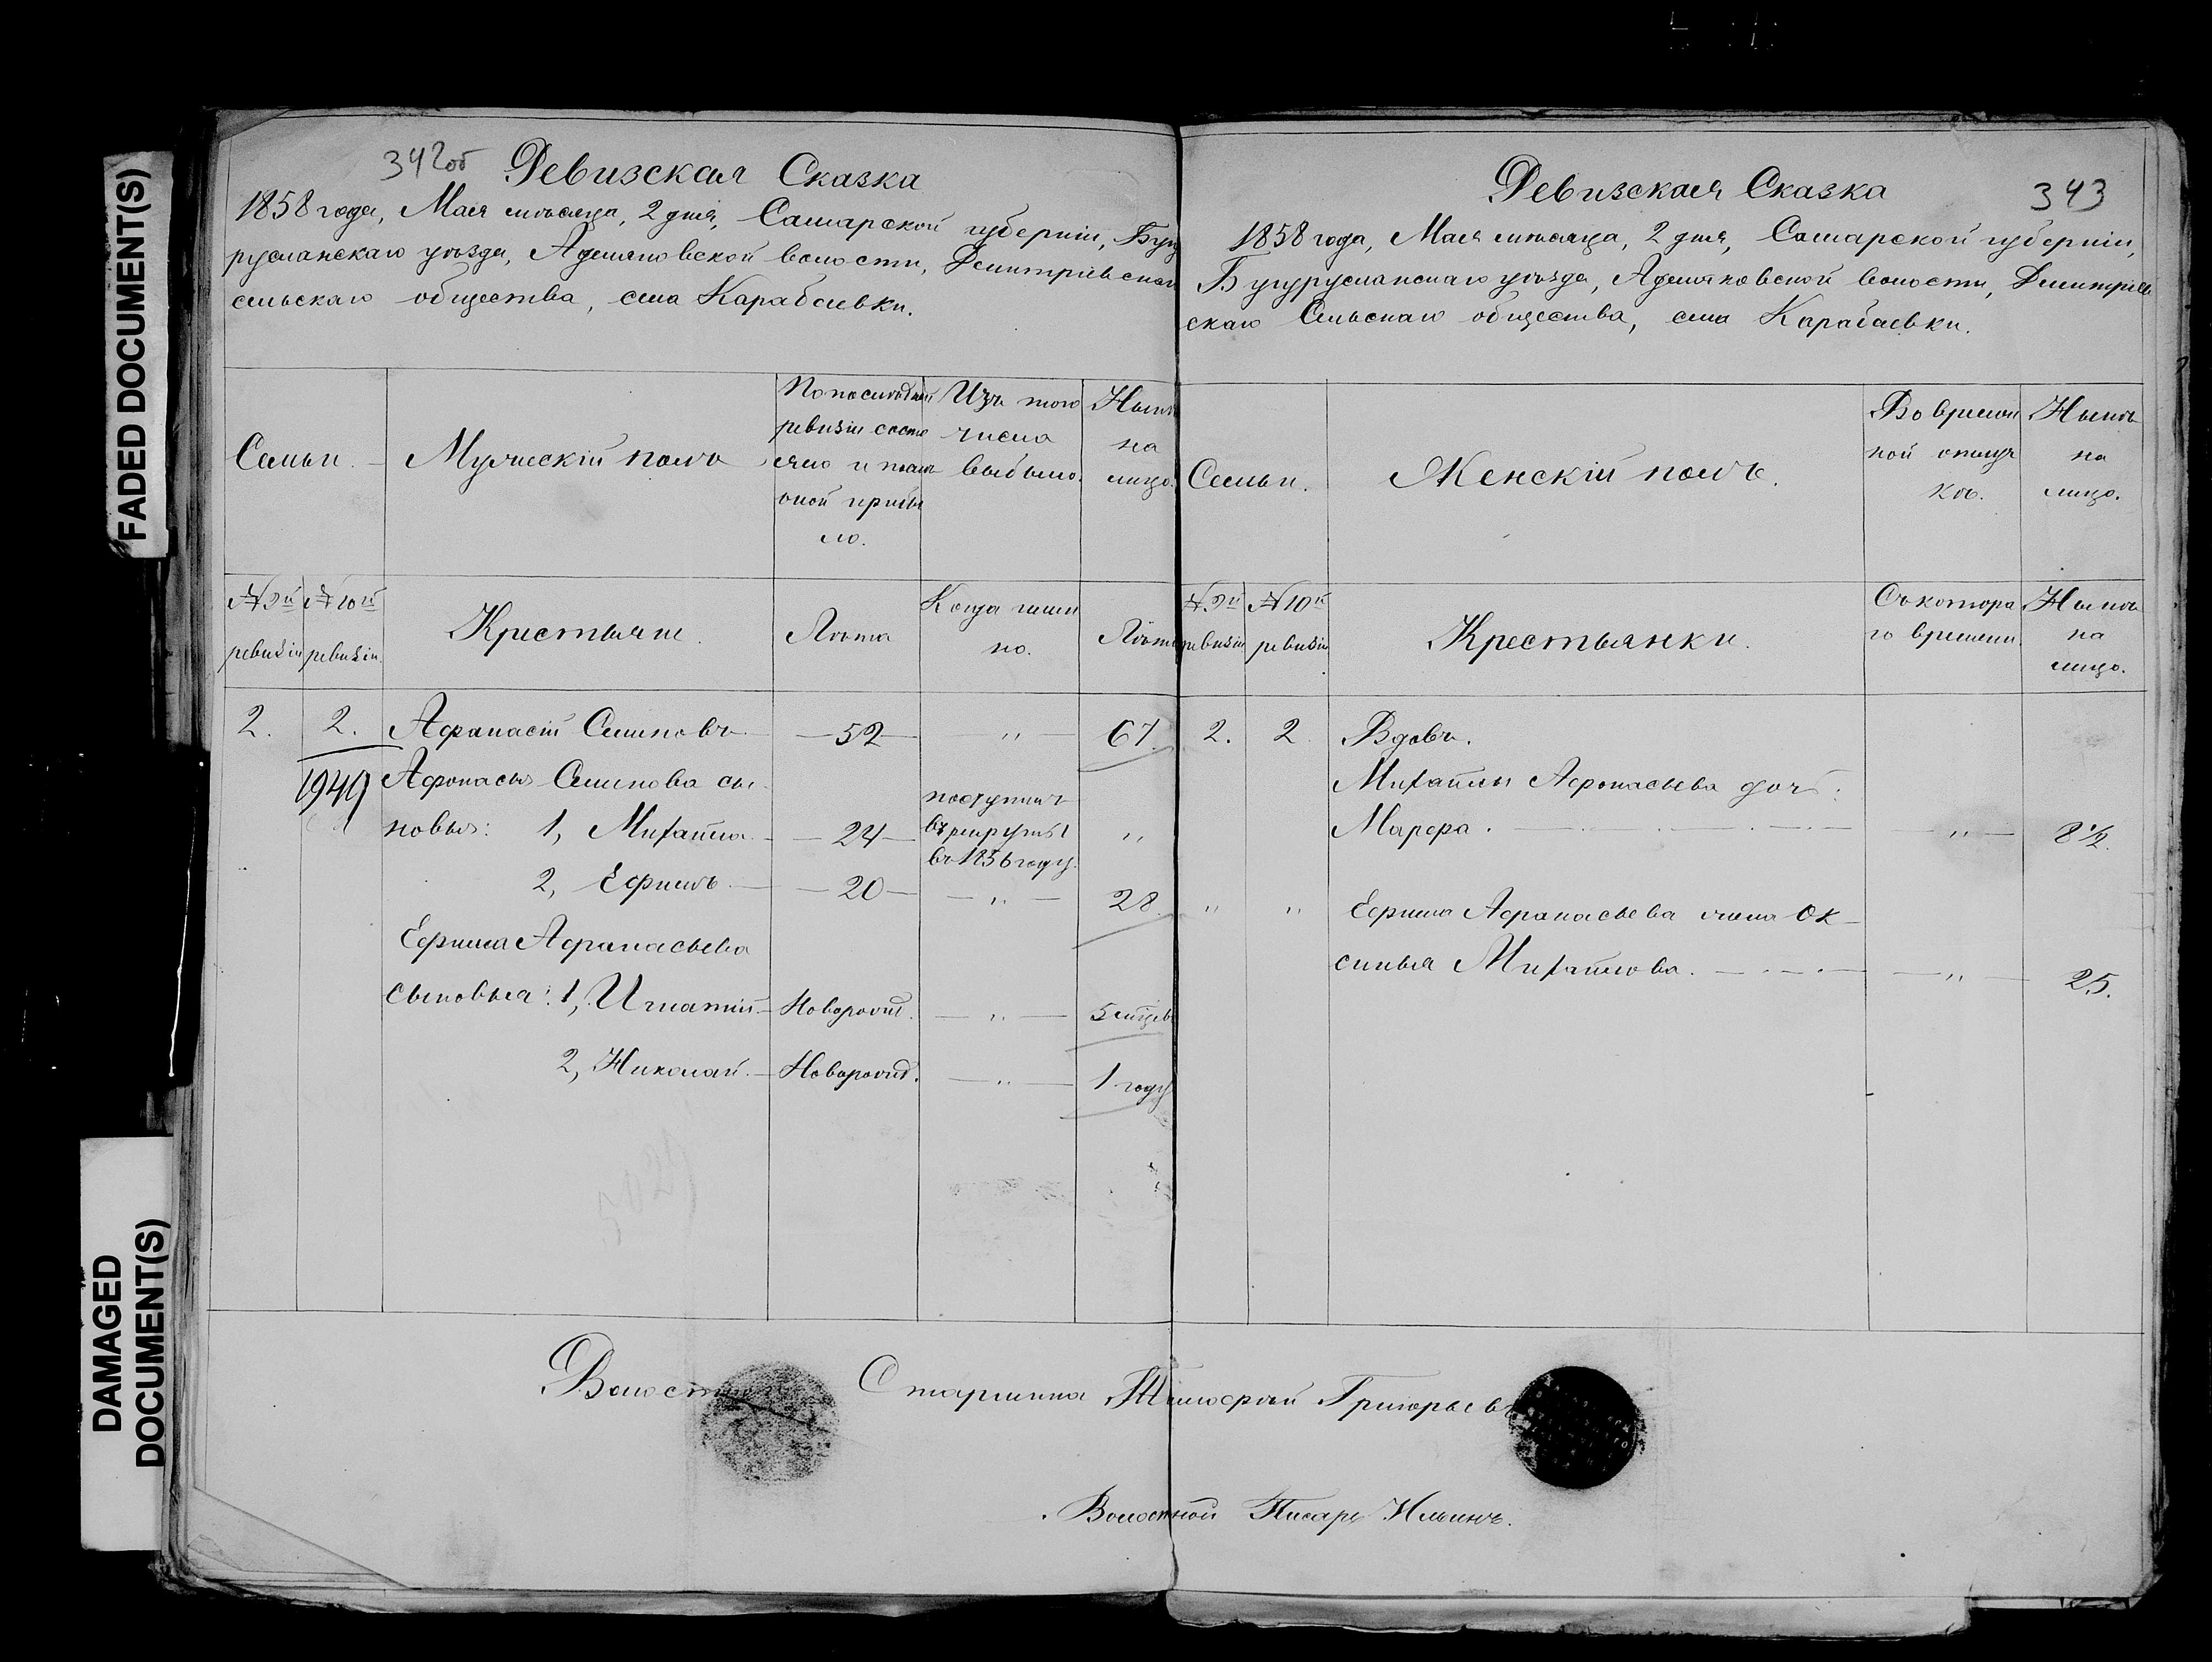 FADED DOCUMENT(S)
DAMAGED
DOCUMENT(S)
342об
Ревизская Сказка
1858 года, Мая мѣсяца, 2 дня, Самарской губерніи, Бугу
русланскаго уѣзда, Аделяковской волости, Дмитріевскаго
сельскаго общества, села Карабаевки.
Семьи.
Мужескій полъ
По послѣдней
ревизіи состо
яло и послѣ
оной прибы
ло.
Изъ того
числа
выбыло.
Нынѣ
на
лицо.
№ 9й
ревизіи
№ 10й
ревизіи.
Крестьяне.
Лѣта
Когда имен
но.
Лѣта
2. 2. Афанасій Семеновъ — 52 — „ — 67.
1949
Афонасья Семенова сы
новья: 1, Михайла — 24 — поступилъ въ рекруты въ 1856 году. „
2, Ефимъ — 20 — „ — 28
Ефима Афанасьева
сыновья: 1, Игнатій — Новорожд. — „ — 5 мѣсяцевъ
2, Николай — Новорожд. — „ — 1 году
Ревизская Сказка
343
1858 года, Мая мѣсяца, 2 дня, Самарской губерніи,
Бугурусланскаго уѣзда, Аделяковской волости, Дмитріев
скаго Сельскаго общества, села Карабаевки.
Семьи.
Женскій полъ.
Во времен
ной отлуч
кѣ.
Нынѣ
на
лицо.
№ 9й
ревизіи
№ 10й
ревизіи
Крестьянки.
Съ котора
го времени.
Нынѣ
на
лицо.
2. 2 Вдовъ.
Михайлы Афонасьева дочь:
Марфа. — „ — 8 1/2.
„ „ Ефима Афанасьева жена Ок
синья Михайлова. — „ — 25.
Волостной Старшина Тимофей Григорьевъ
Волостной Писарь Ильинъ.